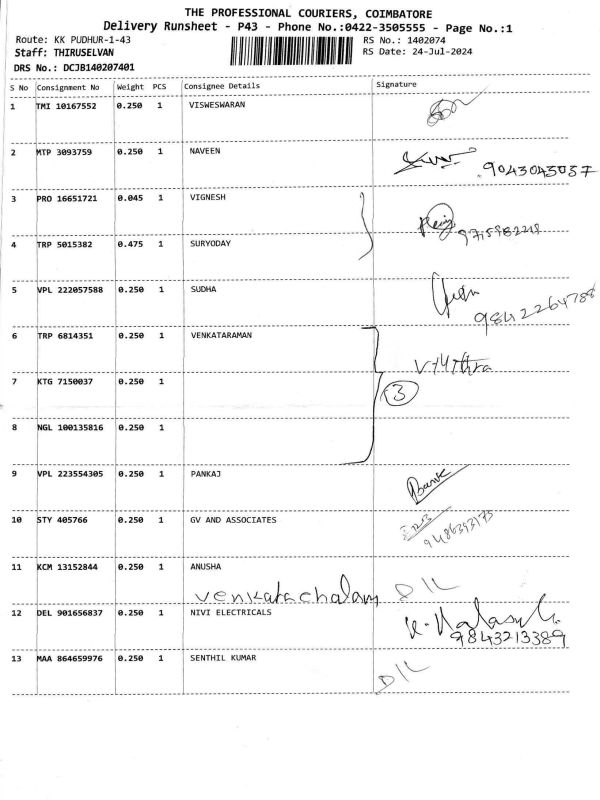 THE PROFESSIONAL COURIERS, COIMBATORE
Delivery Runsheet - P43 - Phone No.:0422-3505555 - Page No.:1
Route: KK PUDHUR-1-43 RS No.: 1402074
Staff: THIRUSELVAN RS Date: 24-Jul-2024
DRS No.: DCJB140207401
S No Consignment No Weight PCS Consignee Details Signature
1 TMI 10167552 0.250 1 VISWESWARAN
2 MTP 3093759 0.250 1 NAVEEN
9043043037
3 PRO 16651721 0.045 1 VIGNESH
4 TRP 5015382 0.475 1 SURYODAY
5 VPL 222057588 0.250 1 SUDHA
9842264788
6 TRP 6814351 0.250 1 VENKATARAMAN
7 KTG 7150037 0.250 1
3
8 NGL 100135816 0.250 1
9 VPL 223554305 0.250 1 PANKAJ
Bank
10 STY 405766 0.250 1 GV AND ASSOCIATES
9486393175
11 KCM 13152844 0.250 1 ANUSHA
venkatachalam D/L
12 DEL 901656837 0.250 1 NIVI ELECTRICALS
9843213389
13 MAA 864659976 0.250 1 SENTHIL KUMAR
D/L